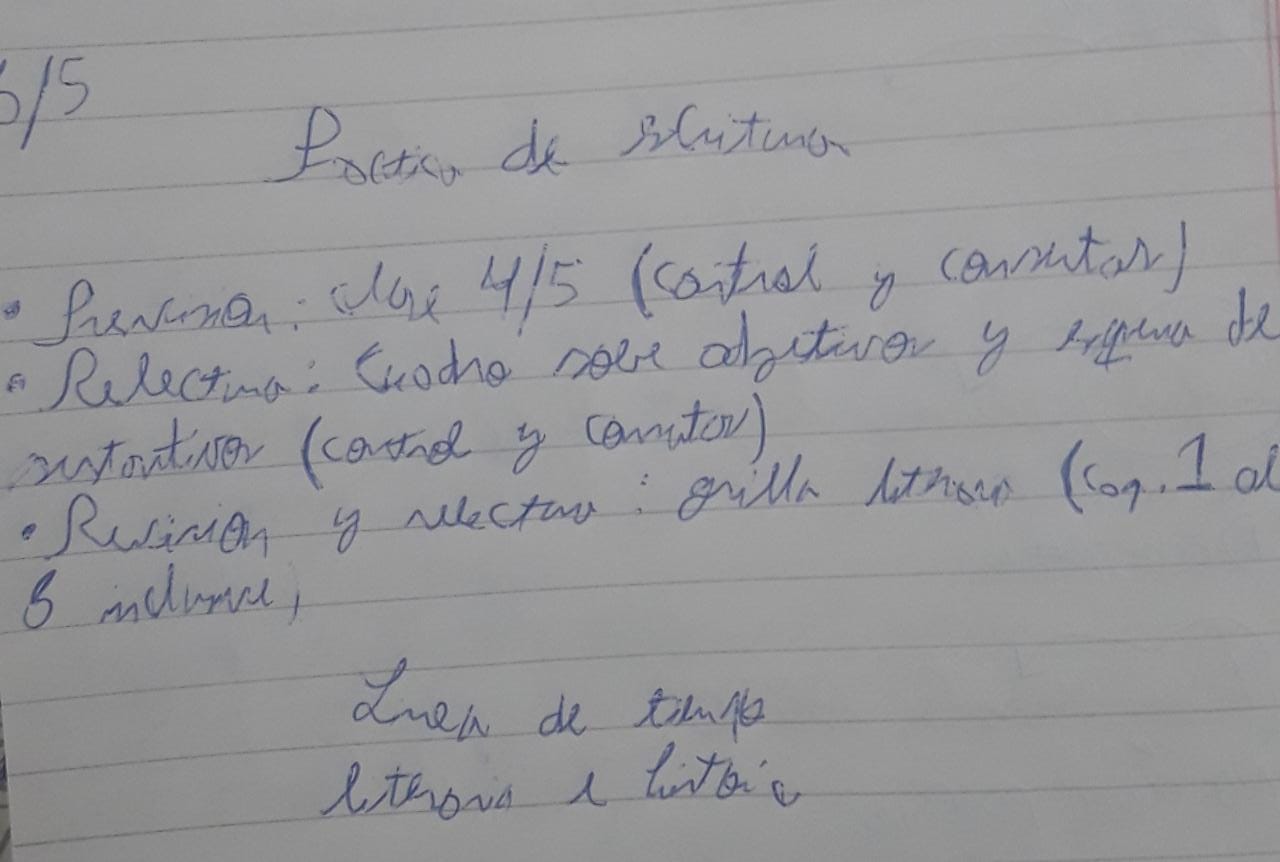 6/5
Práctica de escritura
• Prevision: clase 4/5 (control y comentar)
• Relectura: Cuadro sobre adjetivos y esquema de
sustantivos (control y comentar)
• Revisión y relectura: grilla literaria (Cap. 1 al
8 inclusive)
Linea de tiempo
literaria e histórica